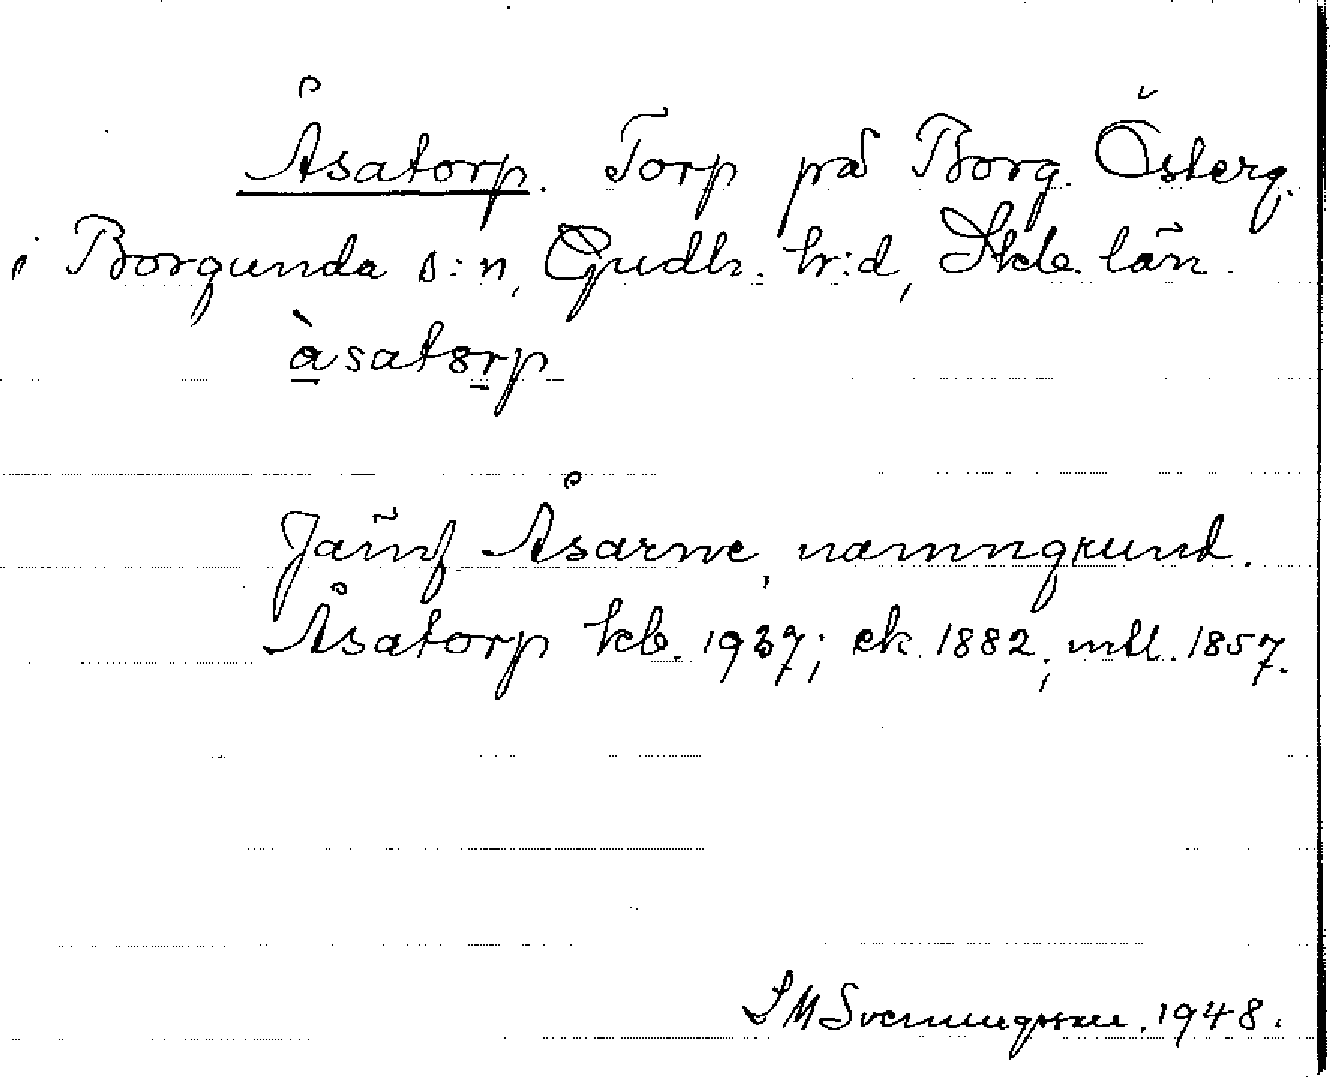 Åsatorp. Torp på Borg. Österg.
i Borgunda s:n, Gudh. hr:d, Skb. län.
àsatorp
Jämf Åsarne, namngrund.
Åsatorp kb. 1937; ek. 1882; mtl. 1857.
S M Svenungsson. 1948.